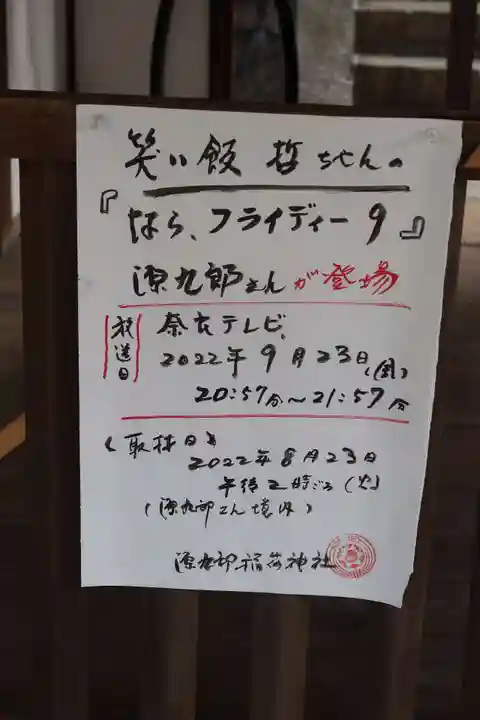 笑い飯 哲ちゃんの
『なら、フライディー9』
源九郎さんが登場
放送日
奈良テレビ、
2022年9月23日(金)
20:57分～21:57分
《取材日》
2022年8月23日
午後2時ごろ(火)
(源九郎さん境内)
源九郎稲荷神社